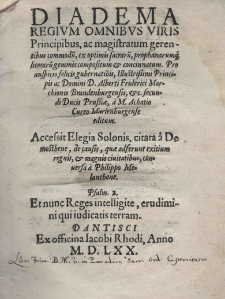 DIADEMA
REGIVM OMNIBVS VIRIS
Principibus, ac magistratum geren-
tibus commodũ, ex optimis sacrorũ, prophanorumq́;
literarũ gemmis compositum & concinnatum. Pro
auspicio felicis gubernationis, Illustrissimi Princi-
pis ac Domini D. Alberti Friderici Mar-
chionis Brandenburgensis, &c. secun-
di Ducis Prussiæ, à M. Achatio
Cureo Marienburgense
editum.
Accessit Elegia Solonis, citata à De-
mosthene, de causis, quæ adferunt exitium
regnis, & magnis ciuitatibus, con-
uersa à Philippo Me-
lanthone.
Psalm. 2.
Et nunc Reges intelligite, erudimi-
ni qui iudicatis terram.
DANTISCI
Ex officina Iacobi Rhodi, Anno
M. D. LXX.